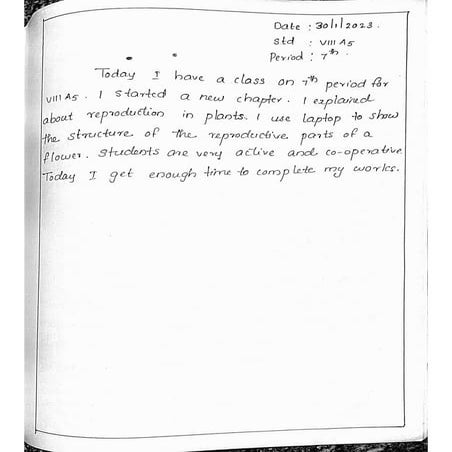 Date : 30/1/2023.
Std : VIII A5
Period : 7th.
Today I have a class on 7th period for
VIII A5. I started a new chapter. I explained
about reproduction in plants. I use laptop to show
the structure of the reproductive parts of a
flower. Students are very active and co-operative
Today I get enough time to complete my works.